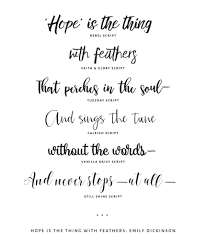 "Hope" is the thing
REBEL SCRIPT
with feathers
FAITH & GLORY SCRIPT
That perches in the soul—
TUESDAY SCRIPT
And sings the tune
CALEIGH SCRIPT
without the words—
VANILLA DAISY SCRIPT
And never stops—at all—
STILL SHINE SCRIPT
HOPE IS THE THING WITH FEATHERS: EMILY DICKINSON